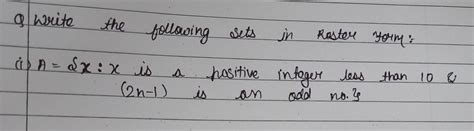 Q Write the following sets in Roster form:
(i) A = {x : x is a positive integer less than 10 &
(2n-1) is an odd no.}